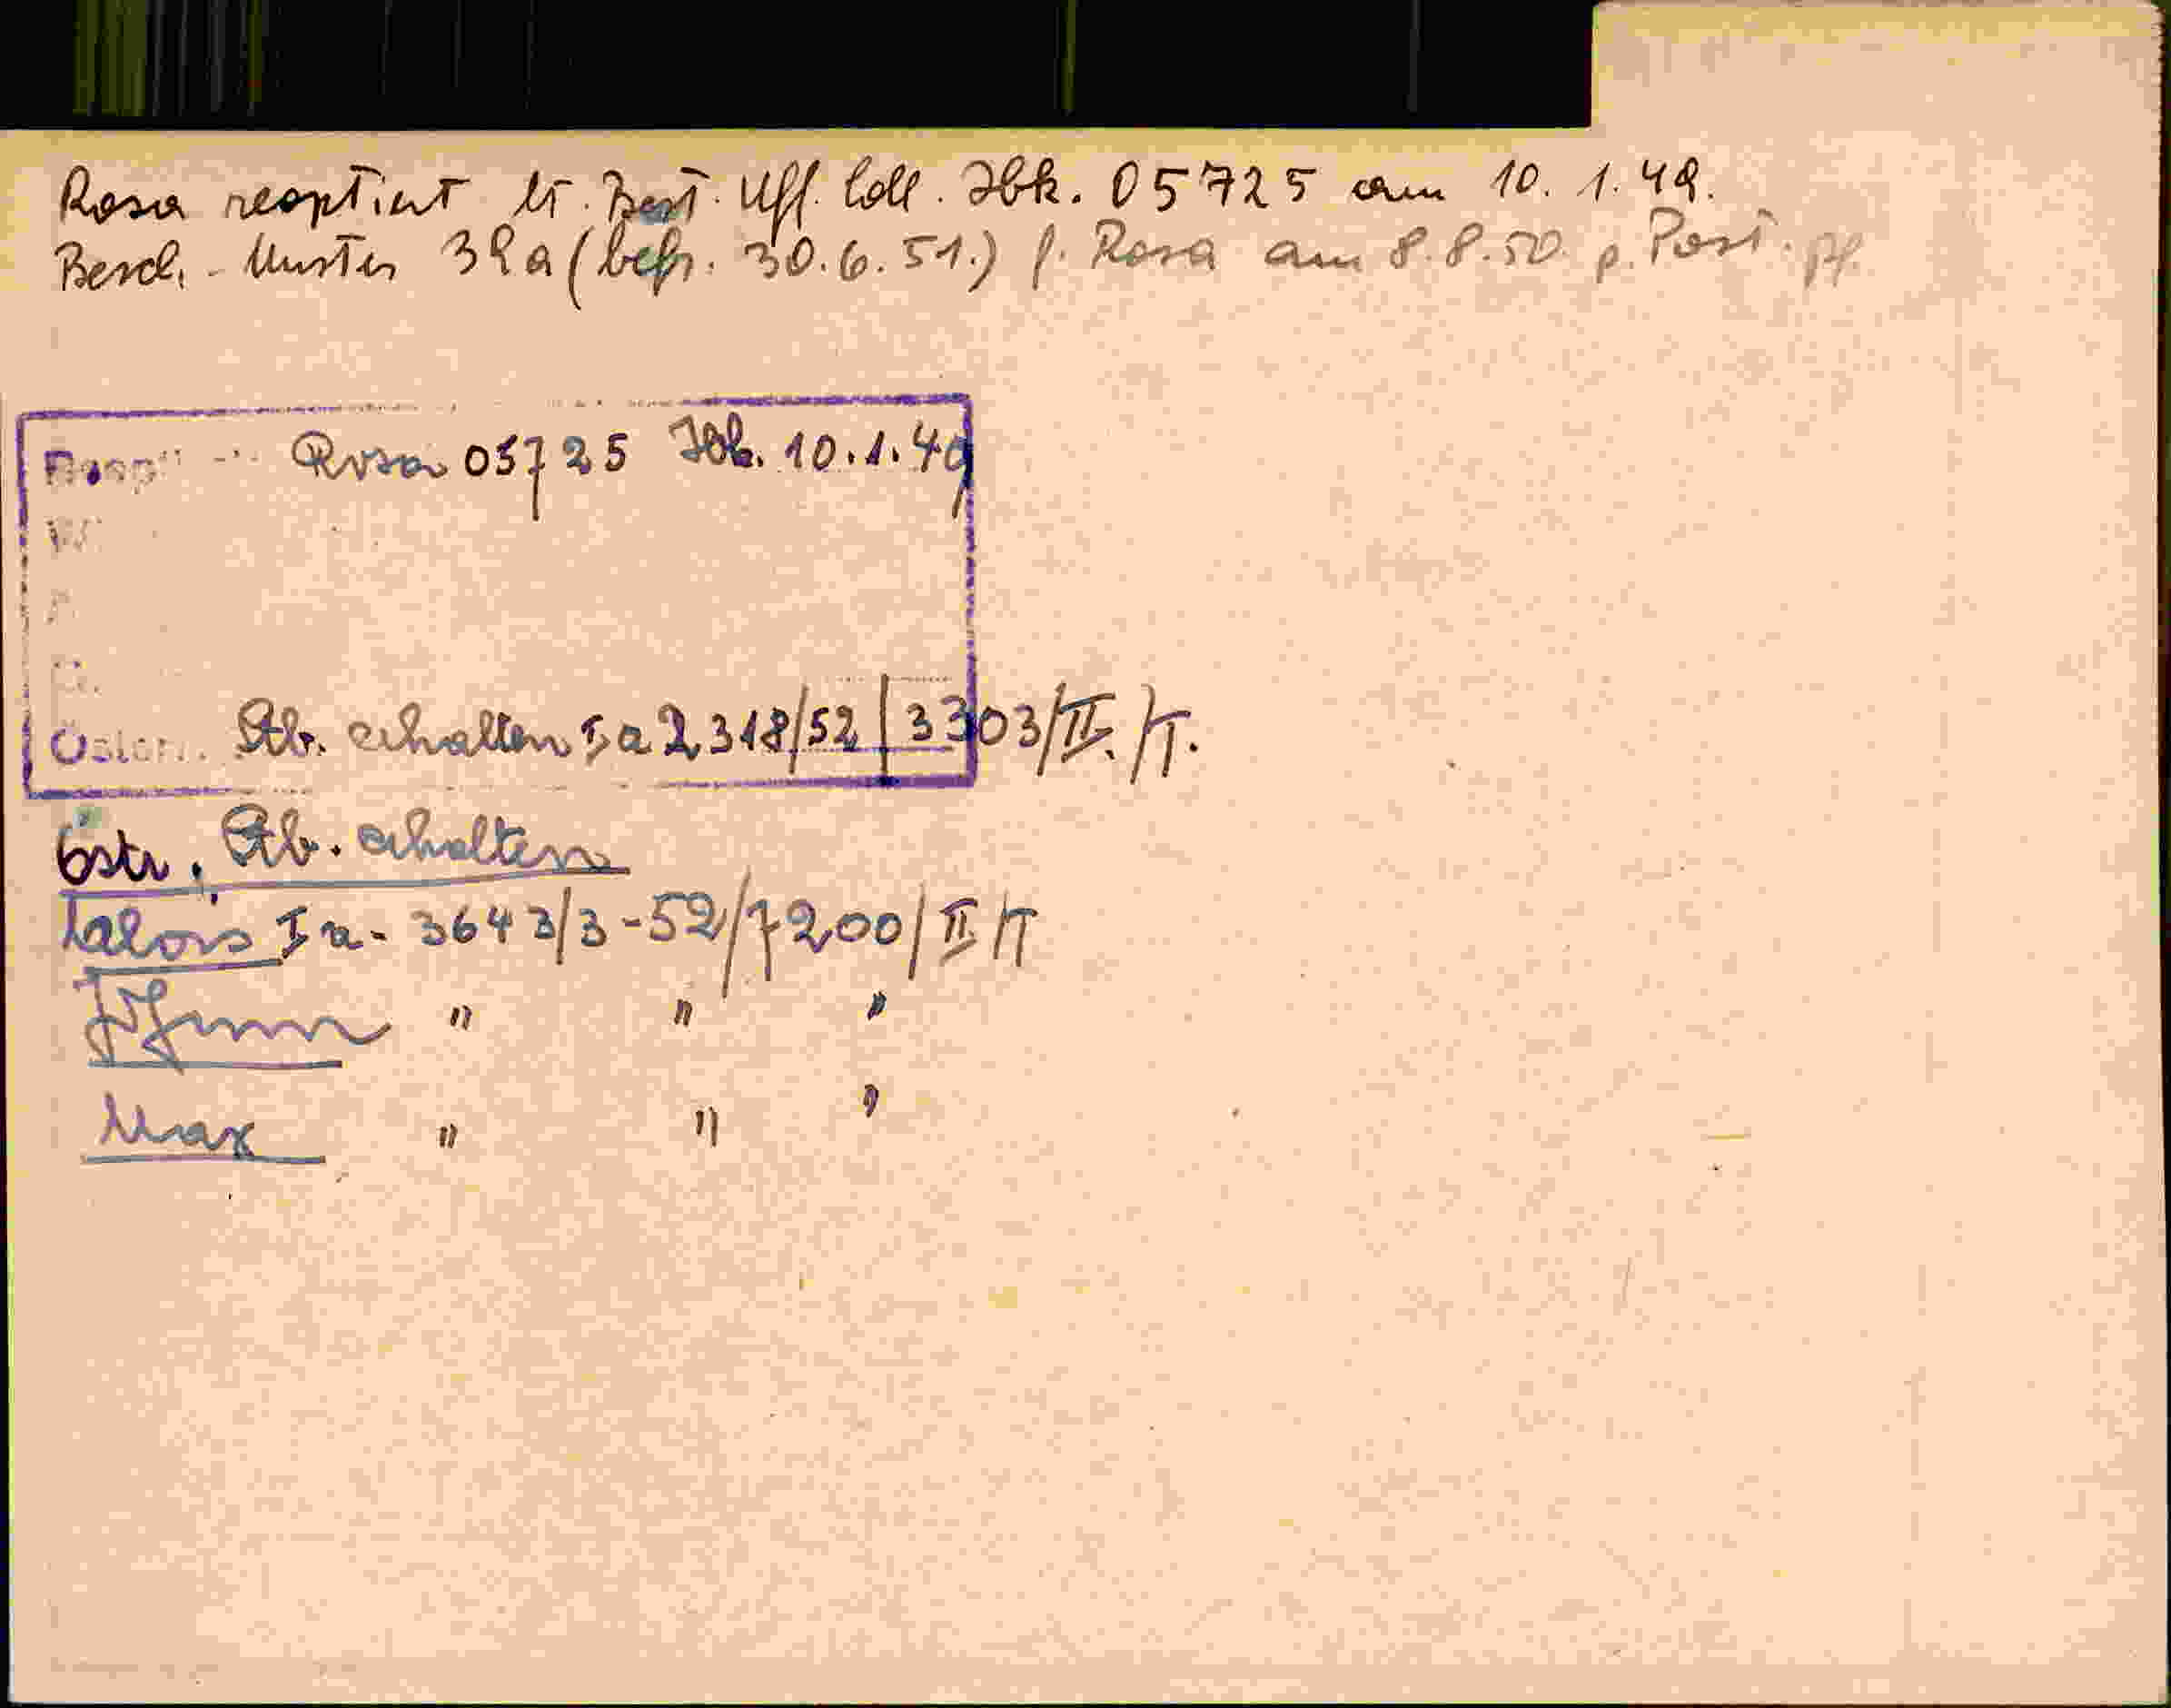 Rosa reoptiert lt. Best. Uff. Coll. Ibk. 05725 am 10. 1. 49.
Besch. - Muster 39a (befr. 30.6.51.) f. Rosa am 8.8.50. p. Post.
Rosa 05725 Ibk. 10.1.49
Österr. Stb. erhalten Ia 2318/52 | 3303/II./T.
Östr. Stb. erhalten
Alois Ia - 3643/3-52/7200/II/T
" " "
Max " " "